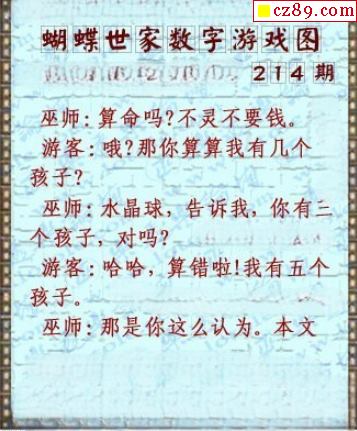 cz89.com
蝴蝶世家数字游戏图
214期
巫师:算命吗?不灵不要钱。
游客:哦?那你算算我有几个
孩子?
巫师:水晶球，告诉我，你有三
个孩子，对吗?
游客:哈哈，算错啦!我有五个
孩子。
巫师:那是你这么认为。本文